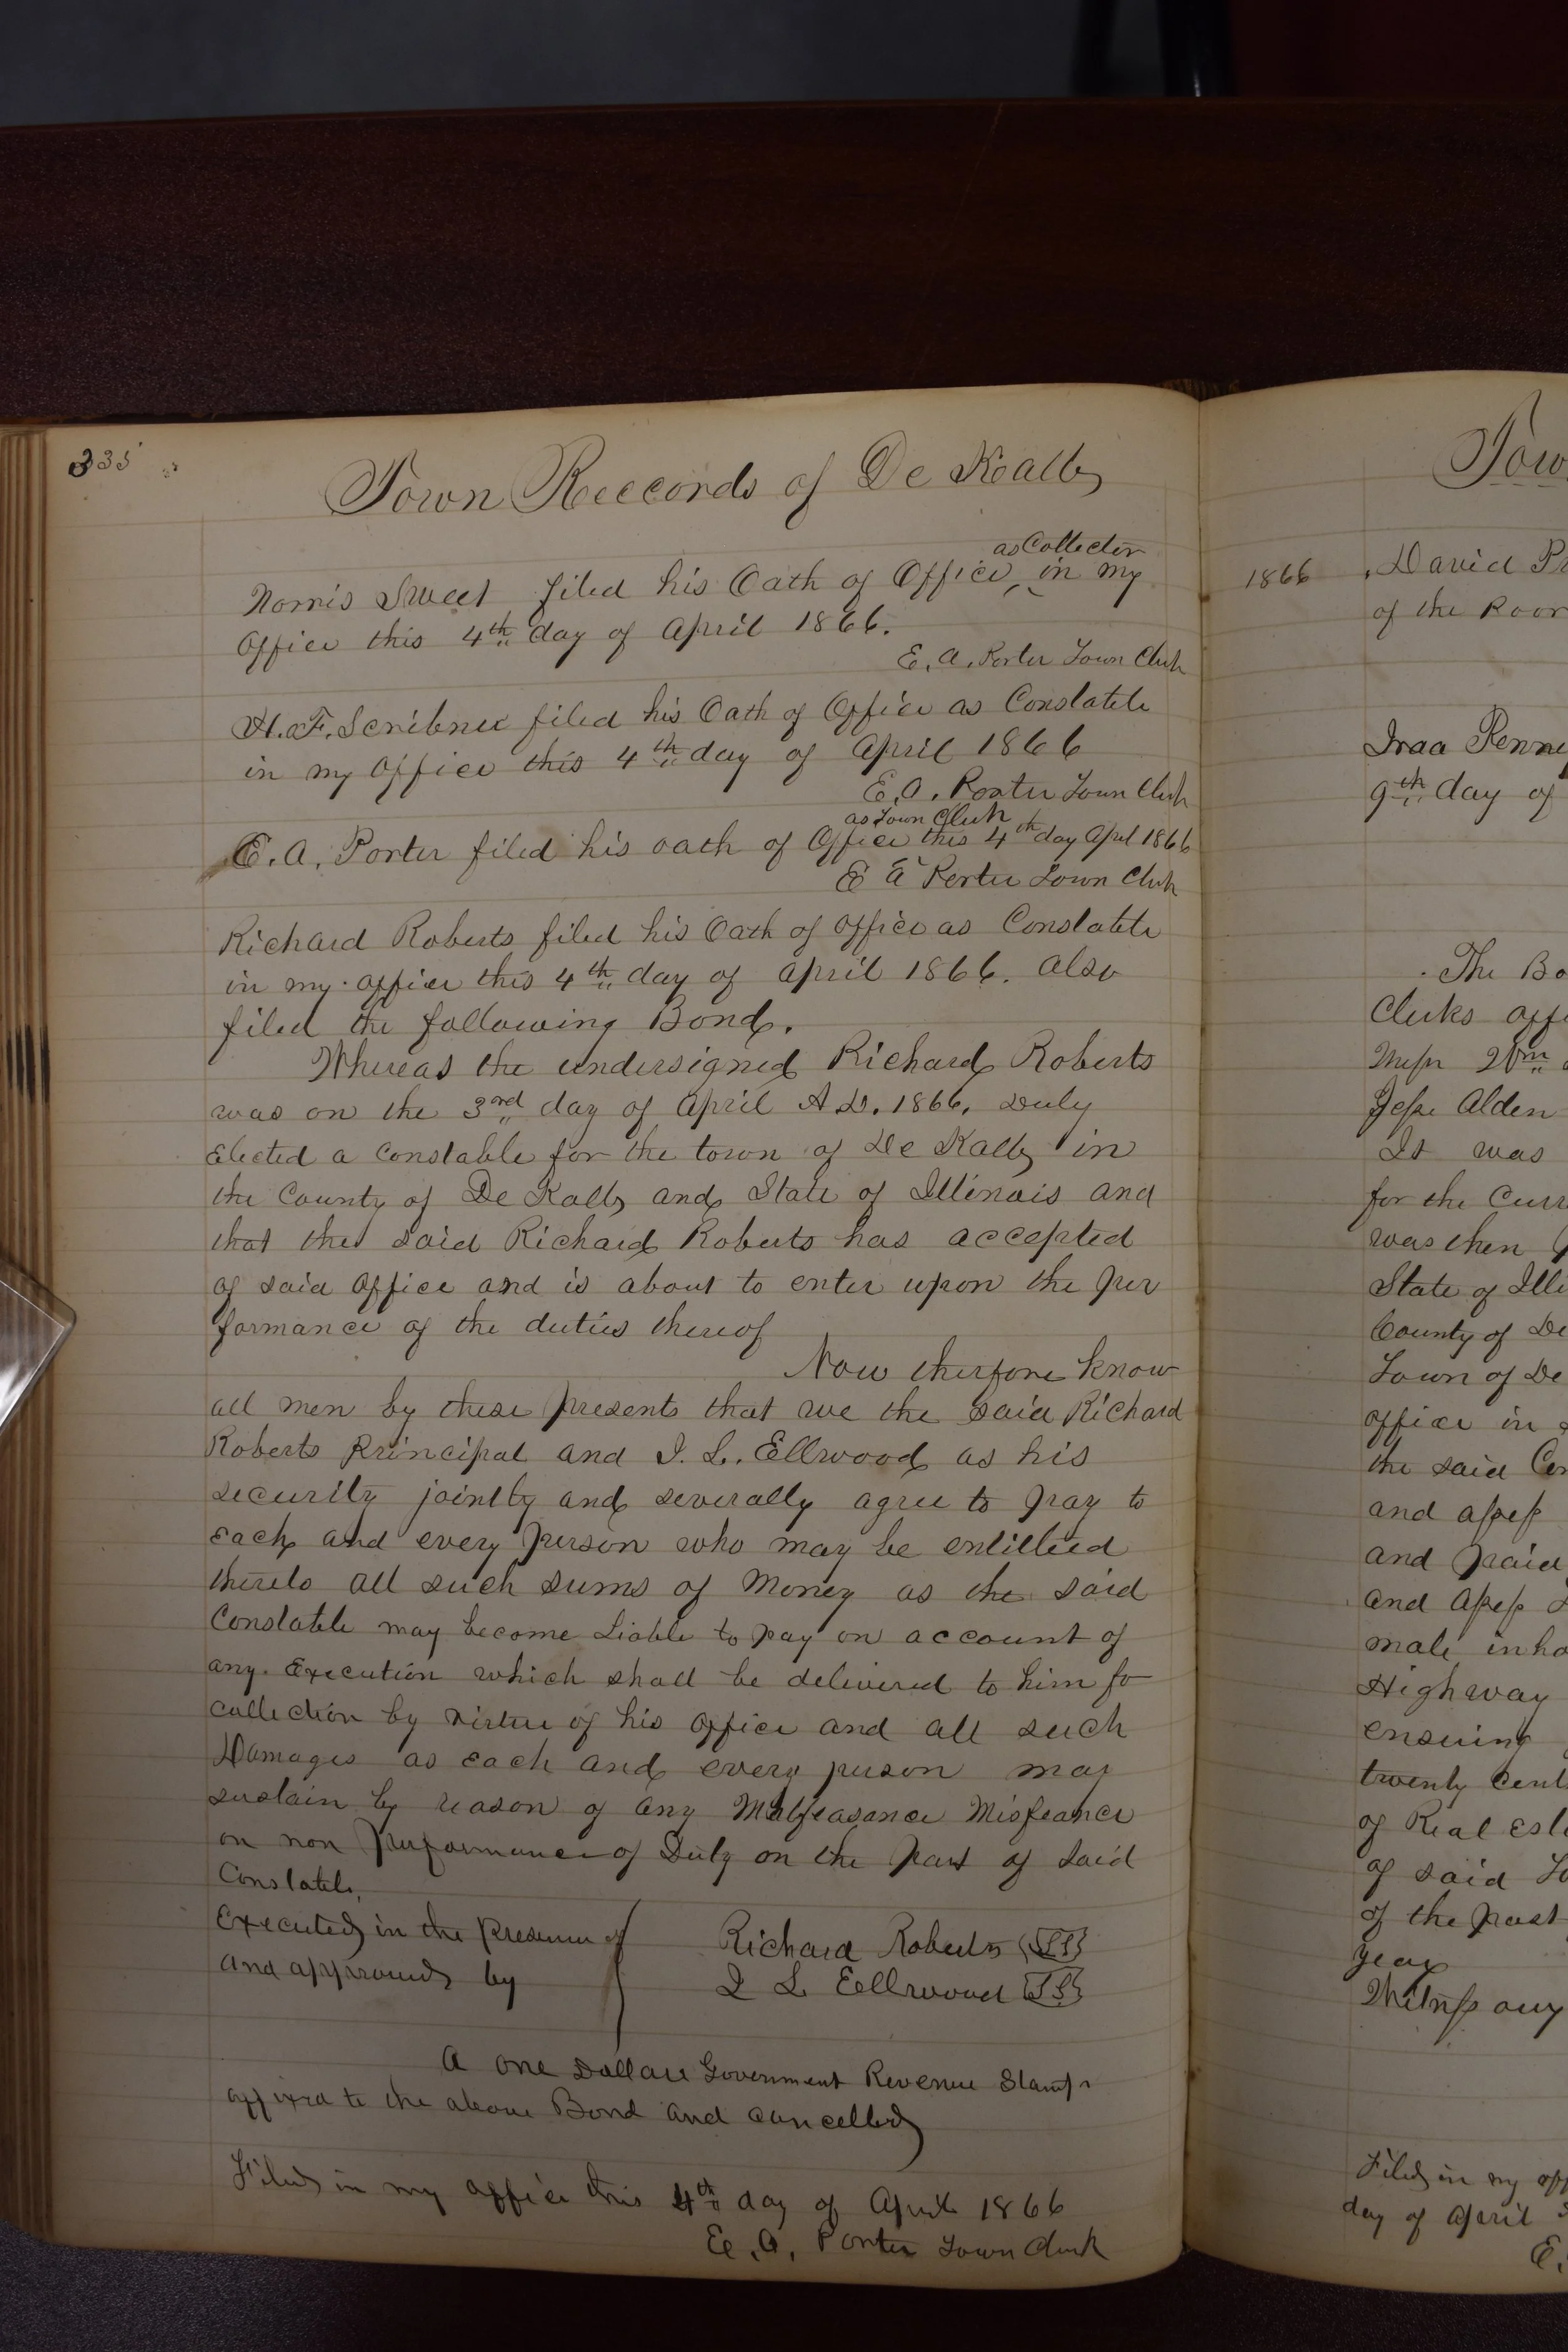 335
Town Reccords of De Kalb
as Collector
Norris Sweet filed his Oath of Office, in my
Office this 4th day of April 1866.
E. A. Porter Town Clerk
H. F. Scribner filed his Oath of Office as Constable
in my office this 4th day of April 1866
E. A. Porter Town Clerk
as Town Clerk
E. A. Porter filed his oath of Office this 4th day Aprl 1866
E A Porter Town Clerk
Richard Roberts filed his Oath of office as Constable
in my office this 4th day of April 1866. Also
filed the following Bond.
Whereas the undersigned Richard Roberts
was on the 3rd day of April A.D. 1866, Duly
Elected a Constable for the town of De Kalb in
the County of De Kalb and State of Illinois and
that the said Richard Roberts has accepted
of said Office and is about to enter upon the per
formance of the duties thereof
Now therfore know
all men by these presents that we the said Richard
Roberts Principal and I. L. Ellwood as his
security jointly and severally agree to pay to
Each and every person who may be entitled
thereto all such sums of Money as the said
Constable may become Liable to pay on account of
any Execution which shall be delivered to him fo
collection by virtue of his office and all such
Damages as Each and every person may
sustain by reason of any Malfeasance Misfeance
or non performance of Duty on the part of said
Constable.
Executed in the presence of
and approved by
Richard Roberts {LS}
I L Eellwood {LS}
A one Dollar Government Revenue Stamp
affixed to the above Bond and cancelled
Filed in my office this 4th day of April 1866
E. A. Porter Town Clerk
Tow
1866 David Pr
of the Poor
Iraa Penne
9th day of
The Bo
Clerks offi
Messr Wm
Jesse Alden
It was
for the Curr
was then
State of Illi
County of De
Town of De
office in
the said Co
and assess
and paid
and assess
male inha
Highway
ensuing
twenty Cent
of Real Est
of said To
of the past
year
Witness our
Filed in my off
day of April
E.